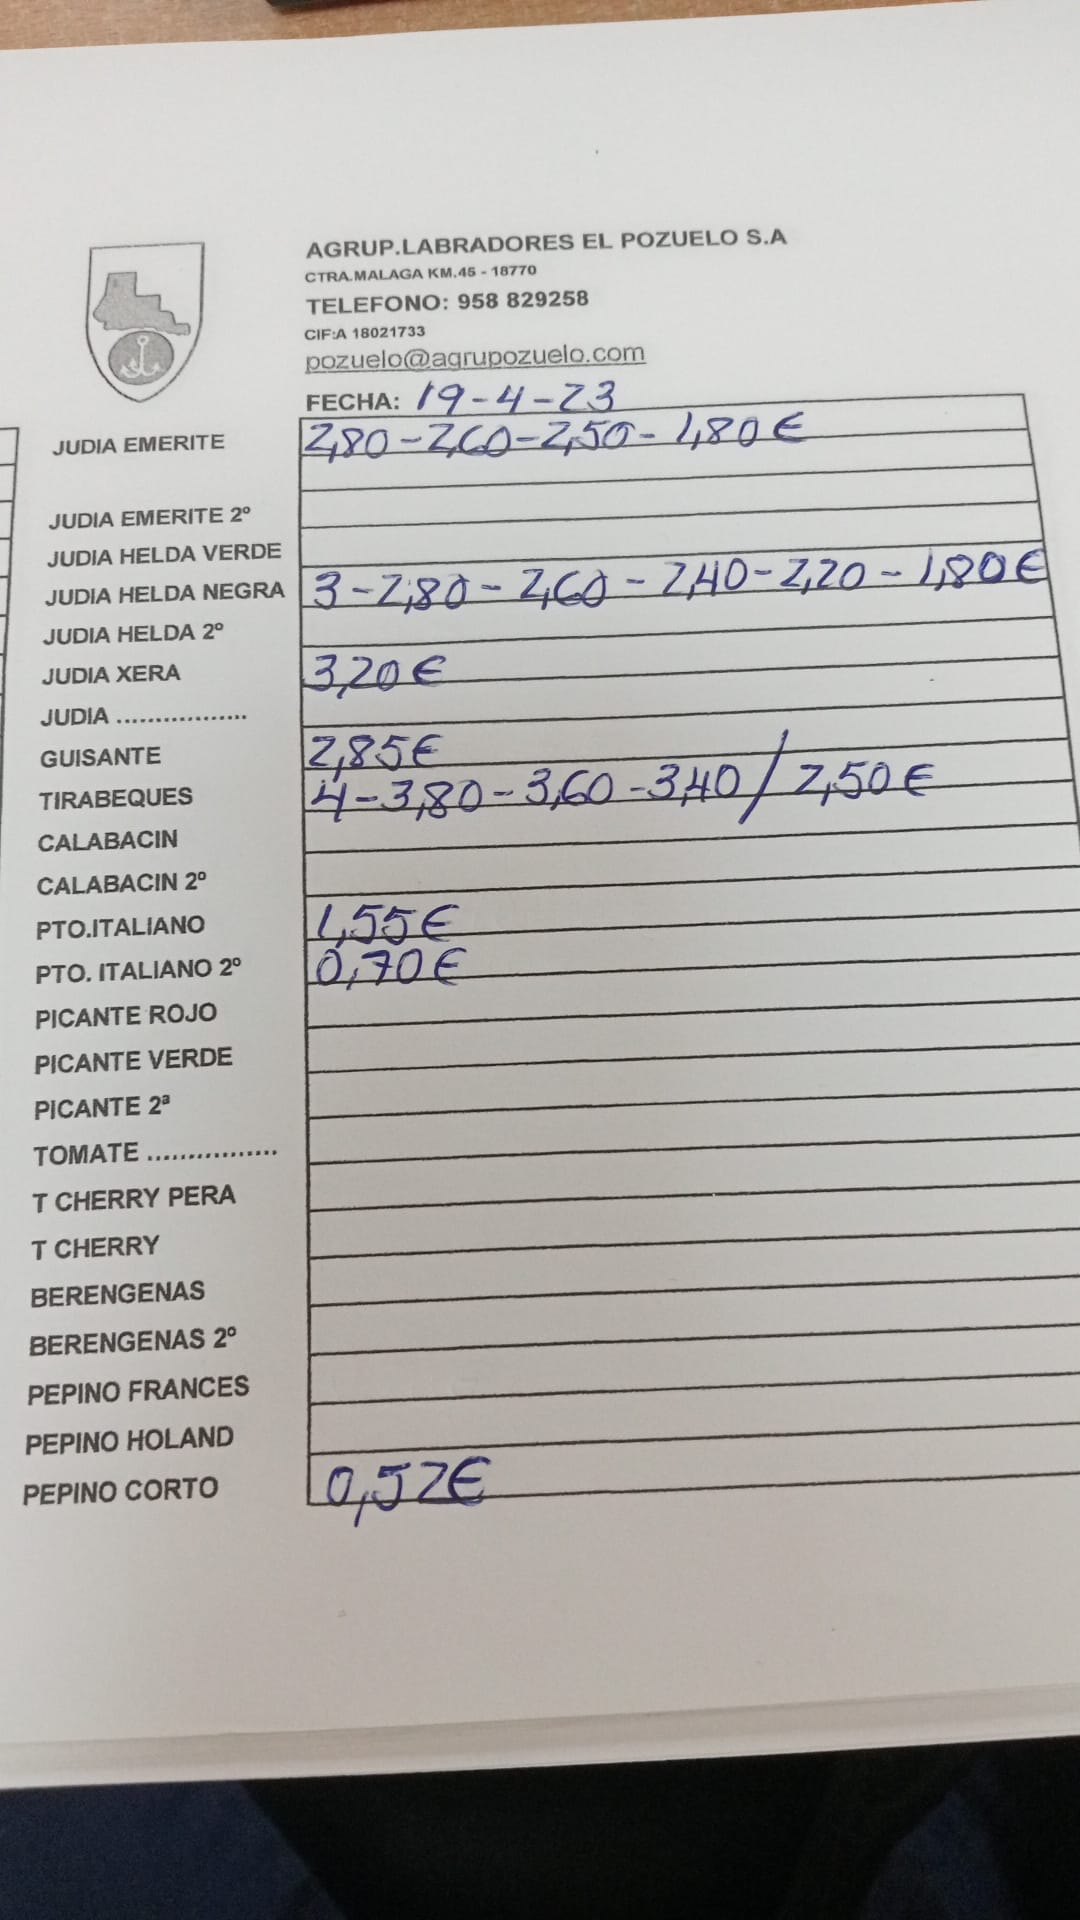 AGRUP.LABRADORES EL POZUELO S.A
CTRA.MALAGA KM.45 - 18770
TELEFONO: 958 829258
CIF:A 18021733
pozuelo@agrupozuelo.com
FECHA: 19-4-23
JUDIA EMERITE 2,80-2,60-2,50-1,80€
JUDIA EMERITE 2º
JUDIA HELDA VERDE
JUDIA HELDA NEGRA 3-2,80-2,60-2,40-2,20-1,80€
JUDIA HELDA 2º
JUDIA XERA 3,20€
JUDIA .................
GUISANTE 2,85€
TIRABEQUES 4-3,80-3,60-3,40/2,50€
CALABACIN
CALABACIN 2º
PTO.ITALIANO 1,55€
PTO. ITALIANO 2º 0,70€
PICANTE ROJO
PICANTE VERDE
PICANTE 2ª
TOMATE ................
T CHERRY PERA
T CHERRY
BERENGENAS
BERENGENAS 2º
PEPINO FRANCES
PEPINO HOLAND
PEPINO CORTO 0,52€